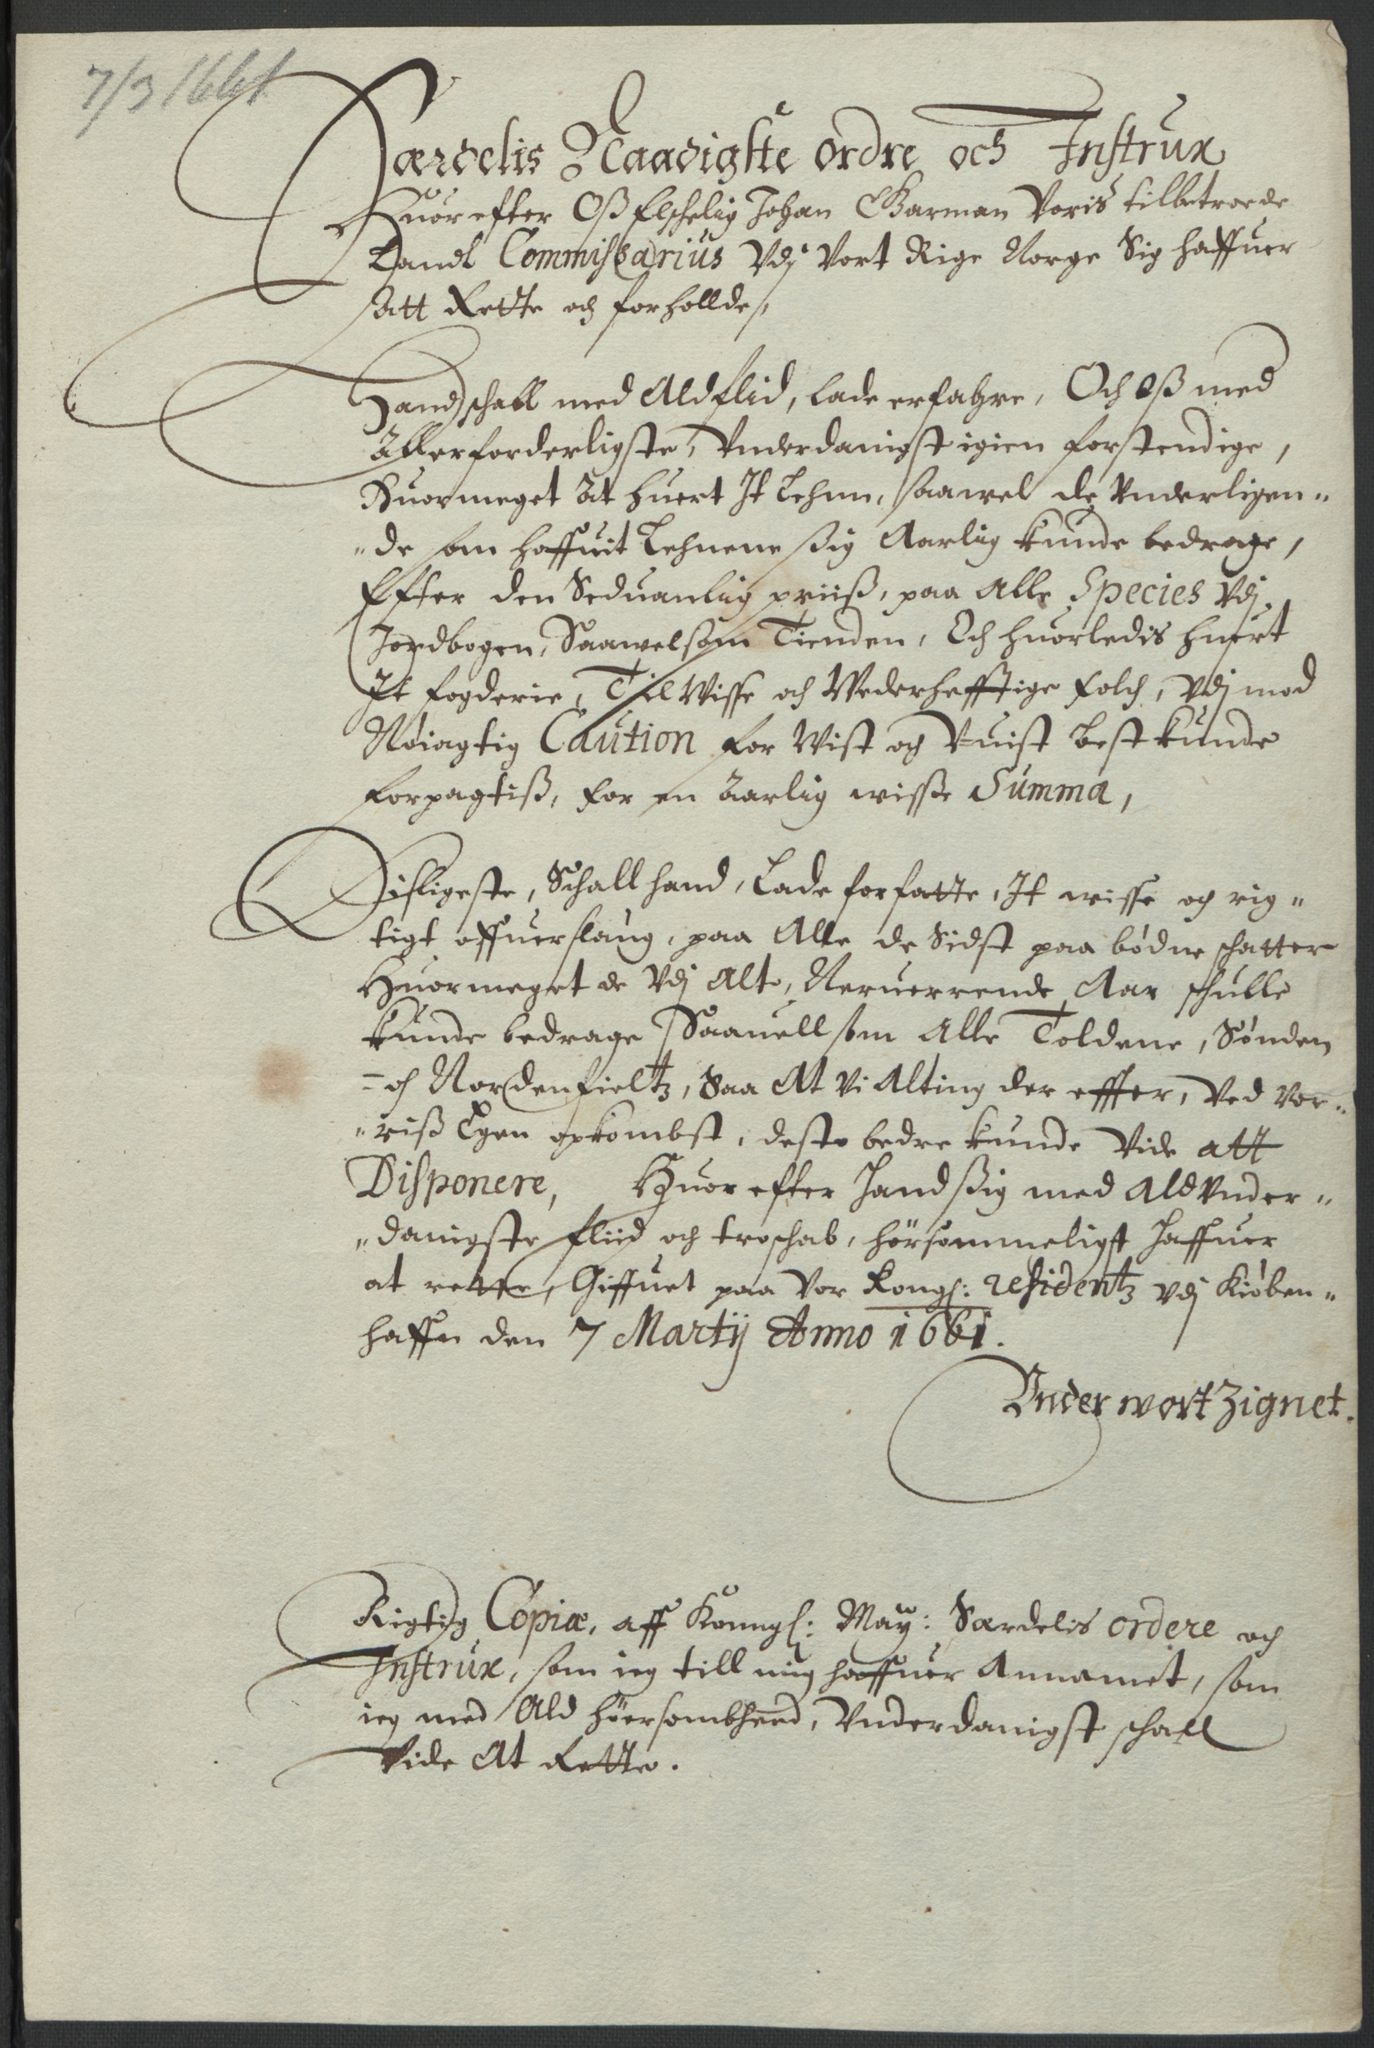 7/3 1661
Særdelis Naadigste ordre och Instrux
Huor efter Oss Elschelig Johan Garman Voris tilbetroede
Landt Commissarius Vdj Vort Rige Norge Sig haffuer
Att Rette och forhollde,
Hand schall med Ald flid, lade erfahre, Och Oß med
Allerforderligste, Vnderdanigst igien forstendige,
Huormeget At huert It Lehnn, saawel de Vnderligen„
„de som Hoffuit Lehnene ßig Aarlig kunde bedrage,
Effter den Seduanlig priiß, paa Alle Species Vdj
Jordbogen, Saawelsom Tienden, Och huorledis huert
It fogderie, Til Wisse och Wederhefftige folch, Vdj mod
Nøiagtig Caution for Wist och Vuist best kunde
forpagtiß, for en Aarlig wisse Summa,
Disligeste, Schall hand, Lade forfatte, It wisse och rig„
tigt offuerslaug, paa Alle de Sidst paa bødne schatter
Huormeget de Vdj Alt, Neruerrende Aar schulle
kunde bedrage Saauell som Alle Toldene, Sønden
= och Nordenfieltz, Saa At Vi Alting der effter, Ved Vor„
„riß Egen opkombst, deste bedre kunde Vide att
Disponere, Huor efter Hand ßig med Ald Vnder„
„danigste fliid och troschab, hørsommeligst Haffuer
at rette, Giffuet paa Vor Kongl: residentz Vdj Kiøben„
haffn den 7 Martij Anno 1661.
Vnder wort Zignet.
Rigtig Copiæ, aff Konngl: May: Særdelis ordere och
Instrux, som ieg till mig haffuer Annamet, som
ieg med Ald Høersombheed, Vnderdanigst schall
Vide At Rette.